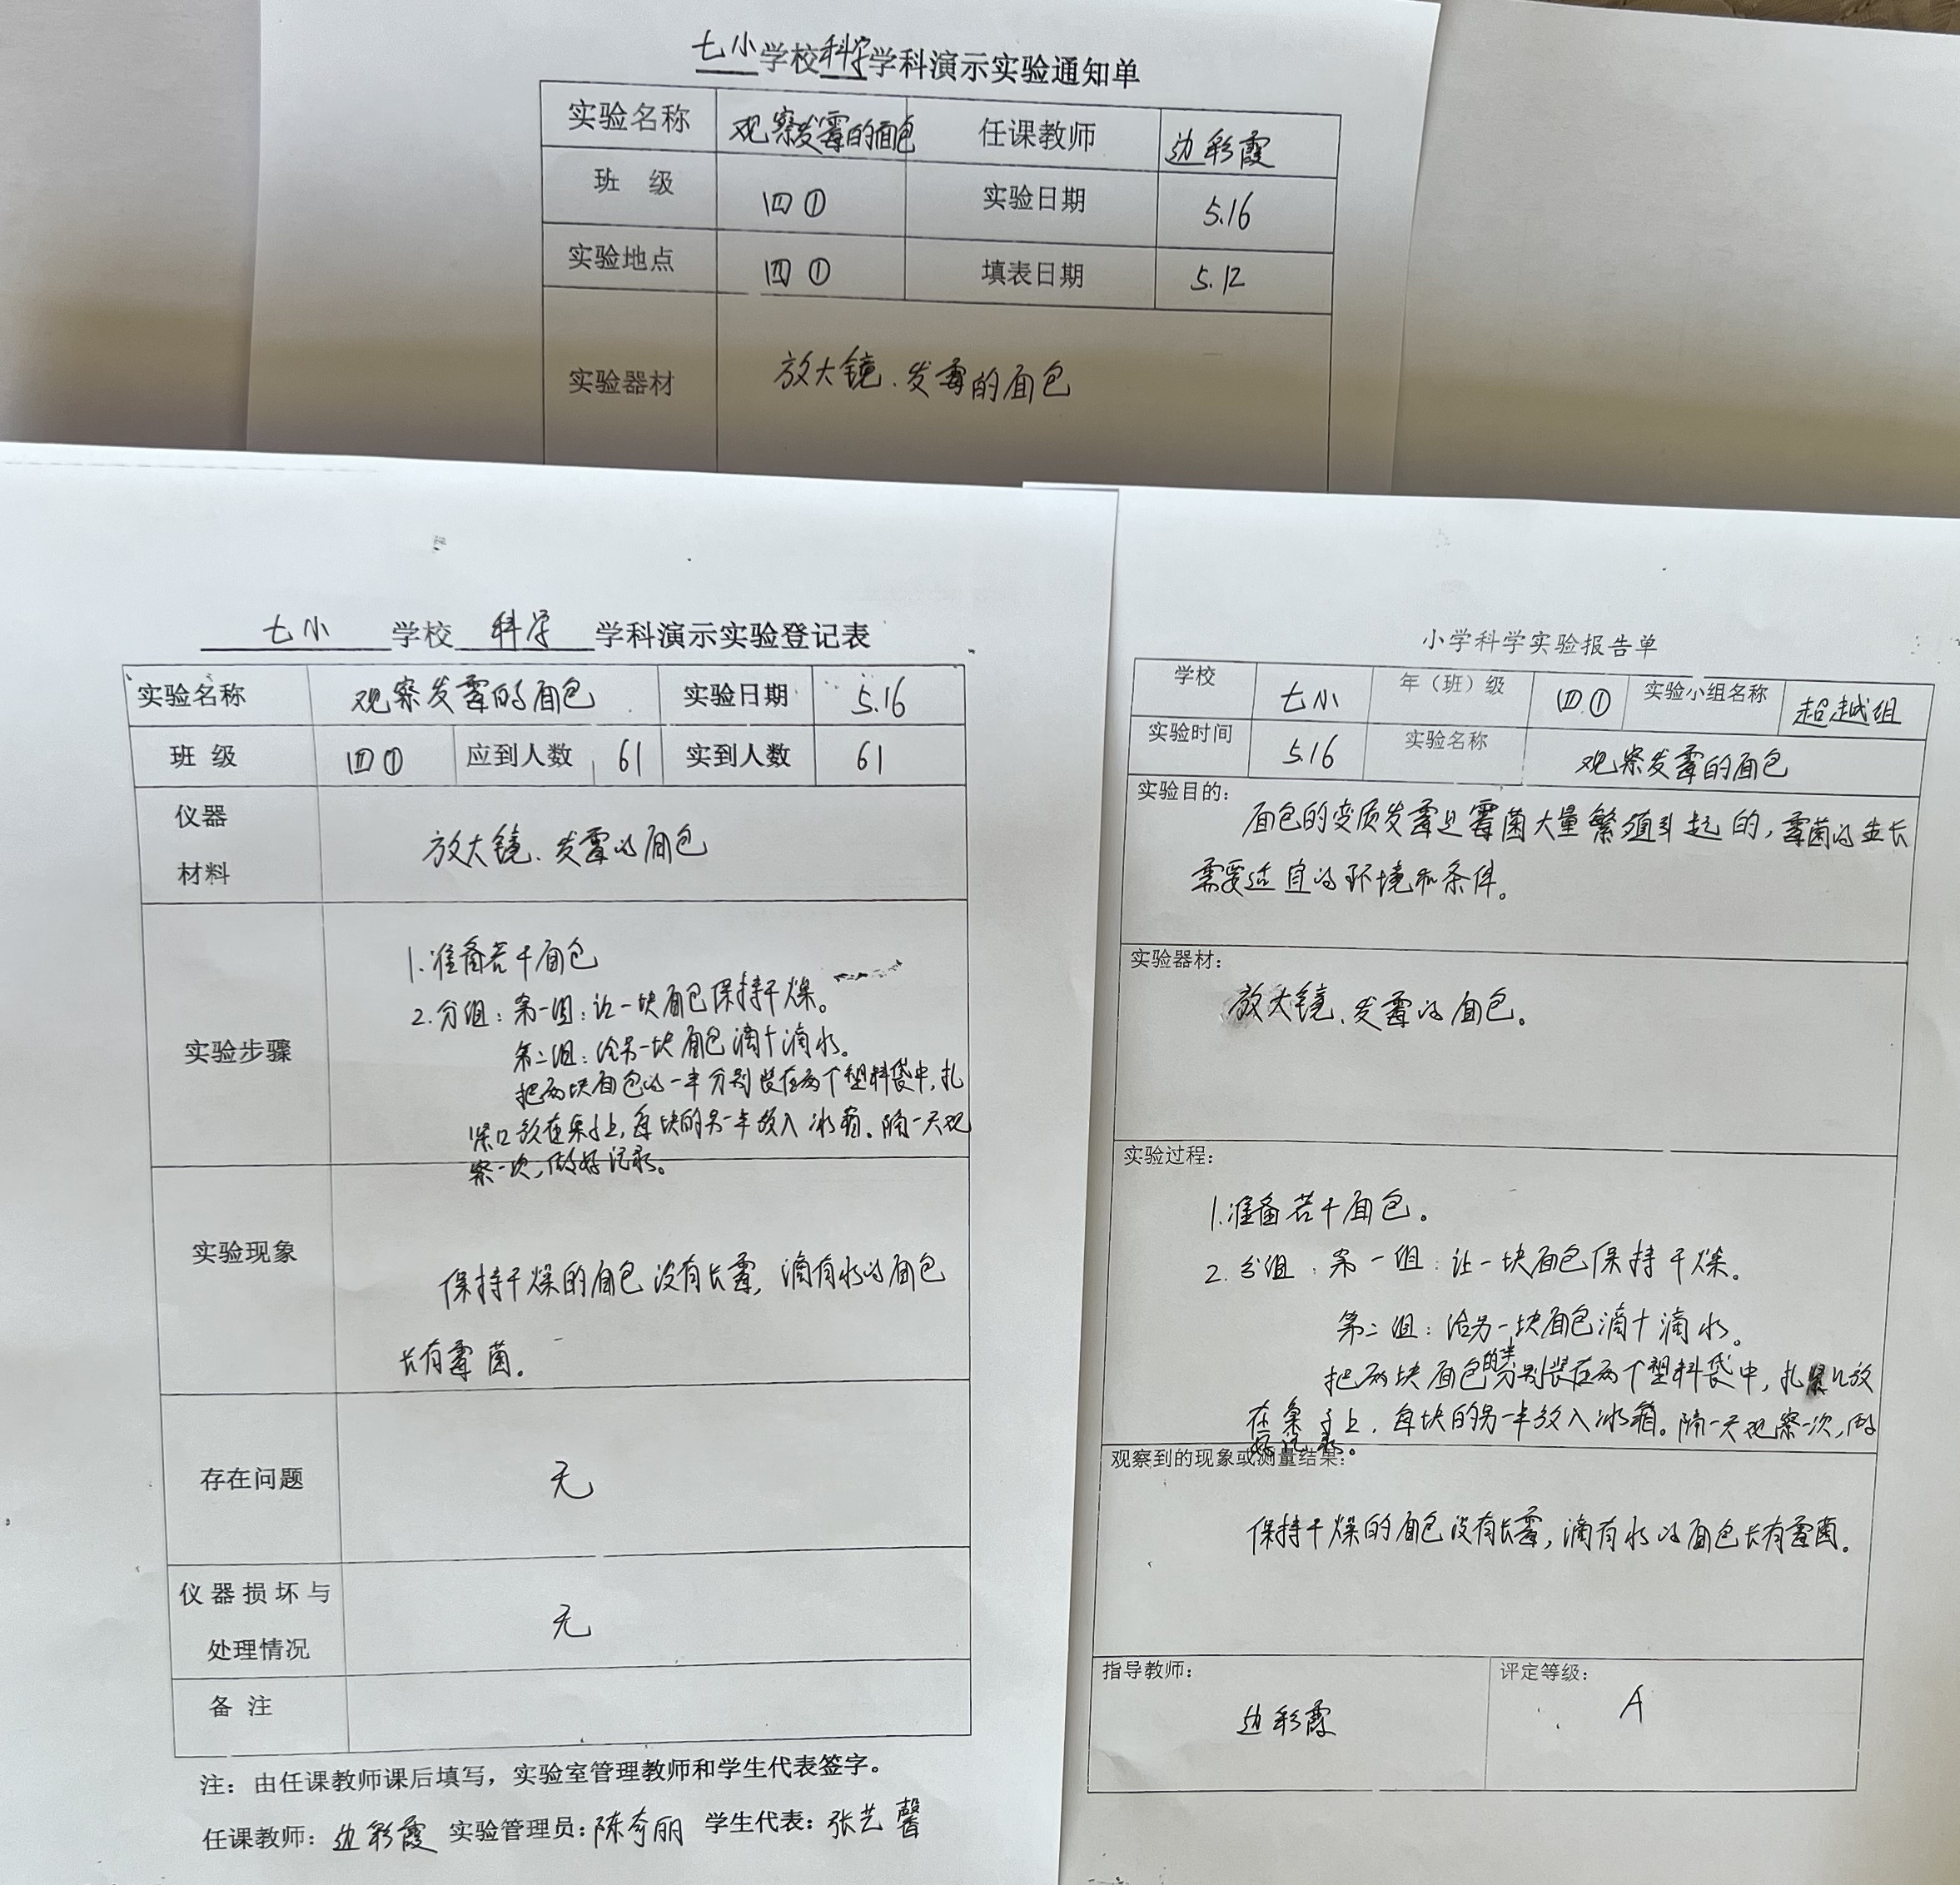 七小学校科学学科演示实验通知单
实验名称 观察发霉的面包 任课教师 边彩霞
班 级 四① 实验日期 5.16
实验地点 四① 填表日期 5.12
实验器材 放大镜、发霉的面包
七小 学校 科学 学科演示实验登记表
实验名称 观察发霉的面包 实验日期 5.16
班 级 四① 应到人数 61 实到人数 61
仪器
材料
放大镜、发霉的面包
实验步骤
1.准备若干面包
2.分组:第一组:让一块面包保持干燥。
第二组:给另一块面包滴十滴水。
把两块面包的一半分别装在两个塑料袋中,扎
紧口放在桌子上,每块的另一半放入冰箱。隔一天观
察一次,做好记录。
实验现象
保持干燥的面包没有长霉,滴有水的面包
长有霉菌。
存在问题 无
仪器损坏与
处理情况
无
备 注
注:由任课教师课后填写,实验室管理教师和学生代表签字。
任课教师:边彩霞 实验管理员:陈奇丽 学生代表:张艺馨
小学科学实验报告单
学校 七小 年(班)级 四① 实验小组名称 超越组
实验时间 5.16 实验名称 观察发霉的面包
实验目的:
面包的变质发霉是霉菌大量繁殖引起的,霉菌的生长
需要适宜的环境和条件。
实验器材:
放大镜、发霉的面包。
实验过程:
1.准备若干面包。
2.分组:第一组:让一块面包保持干燥。
第二组:给另一块面包滴十滴水。
把两块面包的一半分别装在两个塑料袋中,扎紧口放
在桌子上,每块的另一半放入冰箱。隔一天观察一次,做
好记录。
观察到的现象或测量结果:
保持干燥的面包没有长霉,滴有水的面包长有霉菌。
指导教师: 边彩霞 评定等级: A